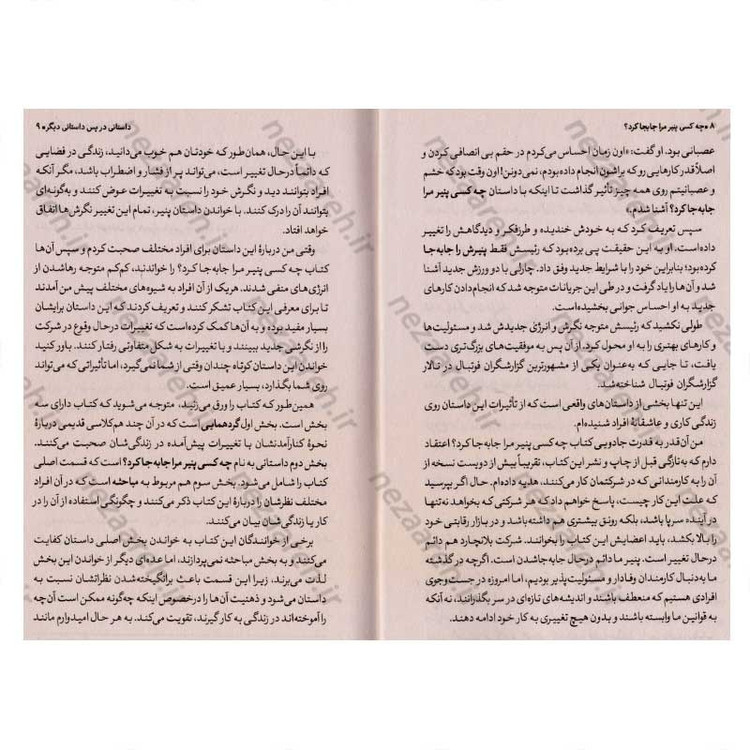 ۸ • چه کسی پنیر مرا جابجا کرد؟
عصبانی بود. او گفت: «اون زمان احساس می‌کردم در حقم بی انصافی کردن و
اصلاً قدر کارهایی رو که براشون انجام داده بودم، نمی‌دونن! اون وقت بود که خشم
و عصبانیتم روی همه چیز تأثیر گذاشت تا اینکه با داستان چه کسی پنیر مرا
جابه‌جا کرد؟ آشنا شدم.»
سپس تعریف کرد که به خودش خندیده و طرزفکر و دیدگاهش را تغییر
داده‌است. او به این حقیقت پی برده‌بود که رئیسش فقط پنیرش را جابه‌جا
کرده‌بود؛ بنابراین خود را با شرایط جدید وفق داد. چارلی با دو ورزش جدید آشنا
شد و آن‌ها را یاد گرفت و در طی این جریانات متوجه شد که انجام‌دادن کارهای
جدید به او احساس جوانی بخشیده‌است.
طولی نکشید که رئیسش متوجه نگرش و انرژی جدیدش شد و مسئولیت‌ها
و کارهای بهتری را به او محول کرد. از آن پس به موفقیت‌های بزرگ‌تری دست
یافت، تا جایی که به‌عنوان یکی از مشهورترین گزارشگران فوتبال در تالار
گزارشگران فوتبال شناخته‌شد.
این تنها بخشی از داستان‌های واقعی است که از تأثیرات این داستان روی
زندگی کاری و عاشقانهٔ افراد شنیده‌ام.
من آن‌قدر به قدرت جادویی کتاب چه کسی پنیر مرا جابه‌جا کرد؟ اعتقاد
دارم که به‌تازگی قبل از چاپ و نشر این کتاب، تقریباً بیش از دویست نسخه از
آن را به کارمندانی که در شرکتمان کار می‌کنند، هدیه داده‌ام. حال اگر بپرسید
که علت این کار چیست، پاسخ خواهم داد که هر شرکتی که بخواهد نه‌تنها
در آینده سرپا باشد، بلکه رونق بیشتری هم داشته‌باشد و در بازار رقابتی خود
را بالا بکشد، باید اعضایش این کتاب را بخوانند. شرکت بلانچارد هم دائم
درحال تغییر است. پنیر ما دائم درحال جابه‌جاشدن است. اگرچه در گذشته
ما به‌دنبال کارمندان وفادار و مسئولیت‌پذیر بودیم، اما امروزه در جست‌وجوی
افرادی هستیم که منعطف باشند و اندیشه‌های تازه‌ای در سر بگذرانند، نه آنکه
به قوانین ما وابسته باشند و بدون هیچ تغییری به کار خود ادامه دهند.
داستانی در پس داستانی دیگر • ۹
با این حال، همان‌طور که خودتان هم خوب می‌دانید، زندگی در فضایی
که دائماً درحال تغییر است، می‌تواند پر از فشار و اضطراب باشد، مگر آنکه
افراد بتوانند دید و نگرش خود را نسبت به تغییرات عوض کنند و به‌گونه‌ای
بتوانند آن را درک کنند. با خواندن داستان پنیر، تمام این تغییر نگرش‌ها اتفاق
خواهد افتاد.
وقتی من دربارهٔ این داستان برای افراد مختلف صحبت کردم و سپس آن‌ها
کتاب چه کسی پنیر مرا جابه‌جا کرد؟ را خواندند، کم‌کم متوجه رهاشدن از
انرژی‌های منفی شدند. هریک از آن افراد به شیوه‌های مختلف پیش من آمدند
تا برای معرفی این کتاب تشکر کنند و تعریف کردند که این داستان برایشان
بسیار مفید بوده و به آن‌ها کمک کرده‌است که تغییرات درحال وقوع در شرکت
را از نگرشی جدید ببینند و با تغییرات به شکل متفاوتی رفتار کنند. باور کنید
خواندن این داستان کوتاه چندان وقتی از شما نمی‌گیرد، اما تأثیراتی که می‌تواند
روی شما بگذارد، بسیار عمیق است.
همین‌طور که کتاب را ورق می‌زنید، متوجه می‌شوید که کتاب دارای سه
بخش است. بخش اول گردهمایی است که در آن چند هم‌کلاسی قدیمی دربارهٔ
نحوهٔ کنارآمدنشان با تغییرات پیش‌آمده در زندگی‌شان صحبت می‌کنند.
بخش دوم داستانی به نام چه کسی پنیر مرا جابه‌جا کرد؟ است که قسمت اصلی
کتاب را شامل می‌شود. بخش سوم هم مربوط به مباحثه است که در آن افراد
مختلف نظرشان را دربارهٔ این کتاب ذکر می‌کنند و چگونگی استفاده از آن را در
کار یا زندگی‌شان بیان می‌کنند.
برخی از خوانندگان این کتاب به خواندن بخش اصلی داستان کفایت
می‌کنند و به بخش مباحثه نمی‌پردازند، اما عده‌ای دیگر از خواندن این بخش
لذت می‌برند، زیرا این قسمت باعث برانگیخته‌شدن نظراتشان نسبت به
داستان می‌شود و ذهنیت آن‌ها را درخصوص اینکه چه‌گونه ممکن است آن‌چه
را آموخته‌اند در زندگی به کار گیرند، تقویت می‌کند. به هر حال امیدوارم مانند
nezaareh.ir